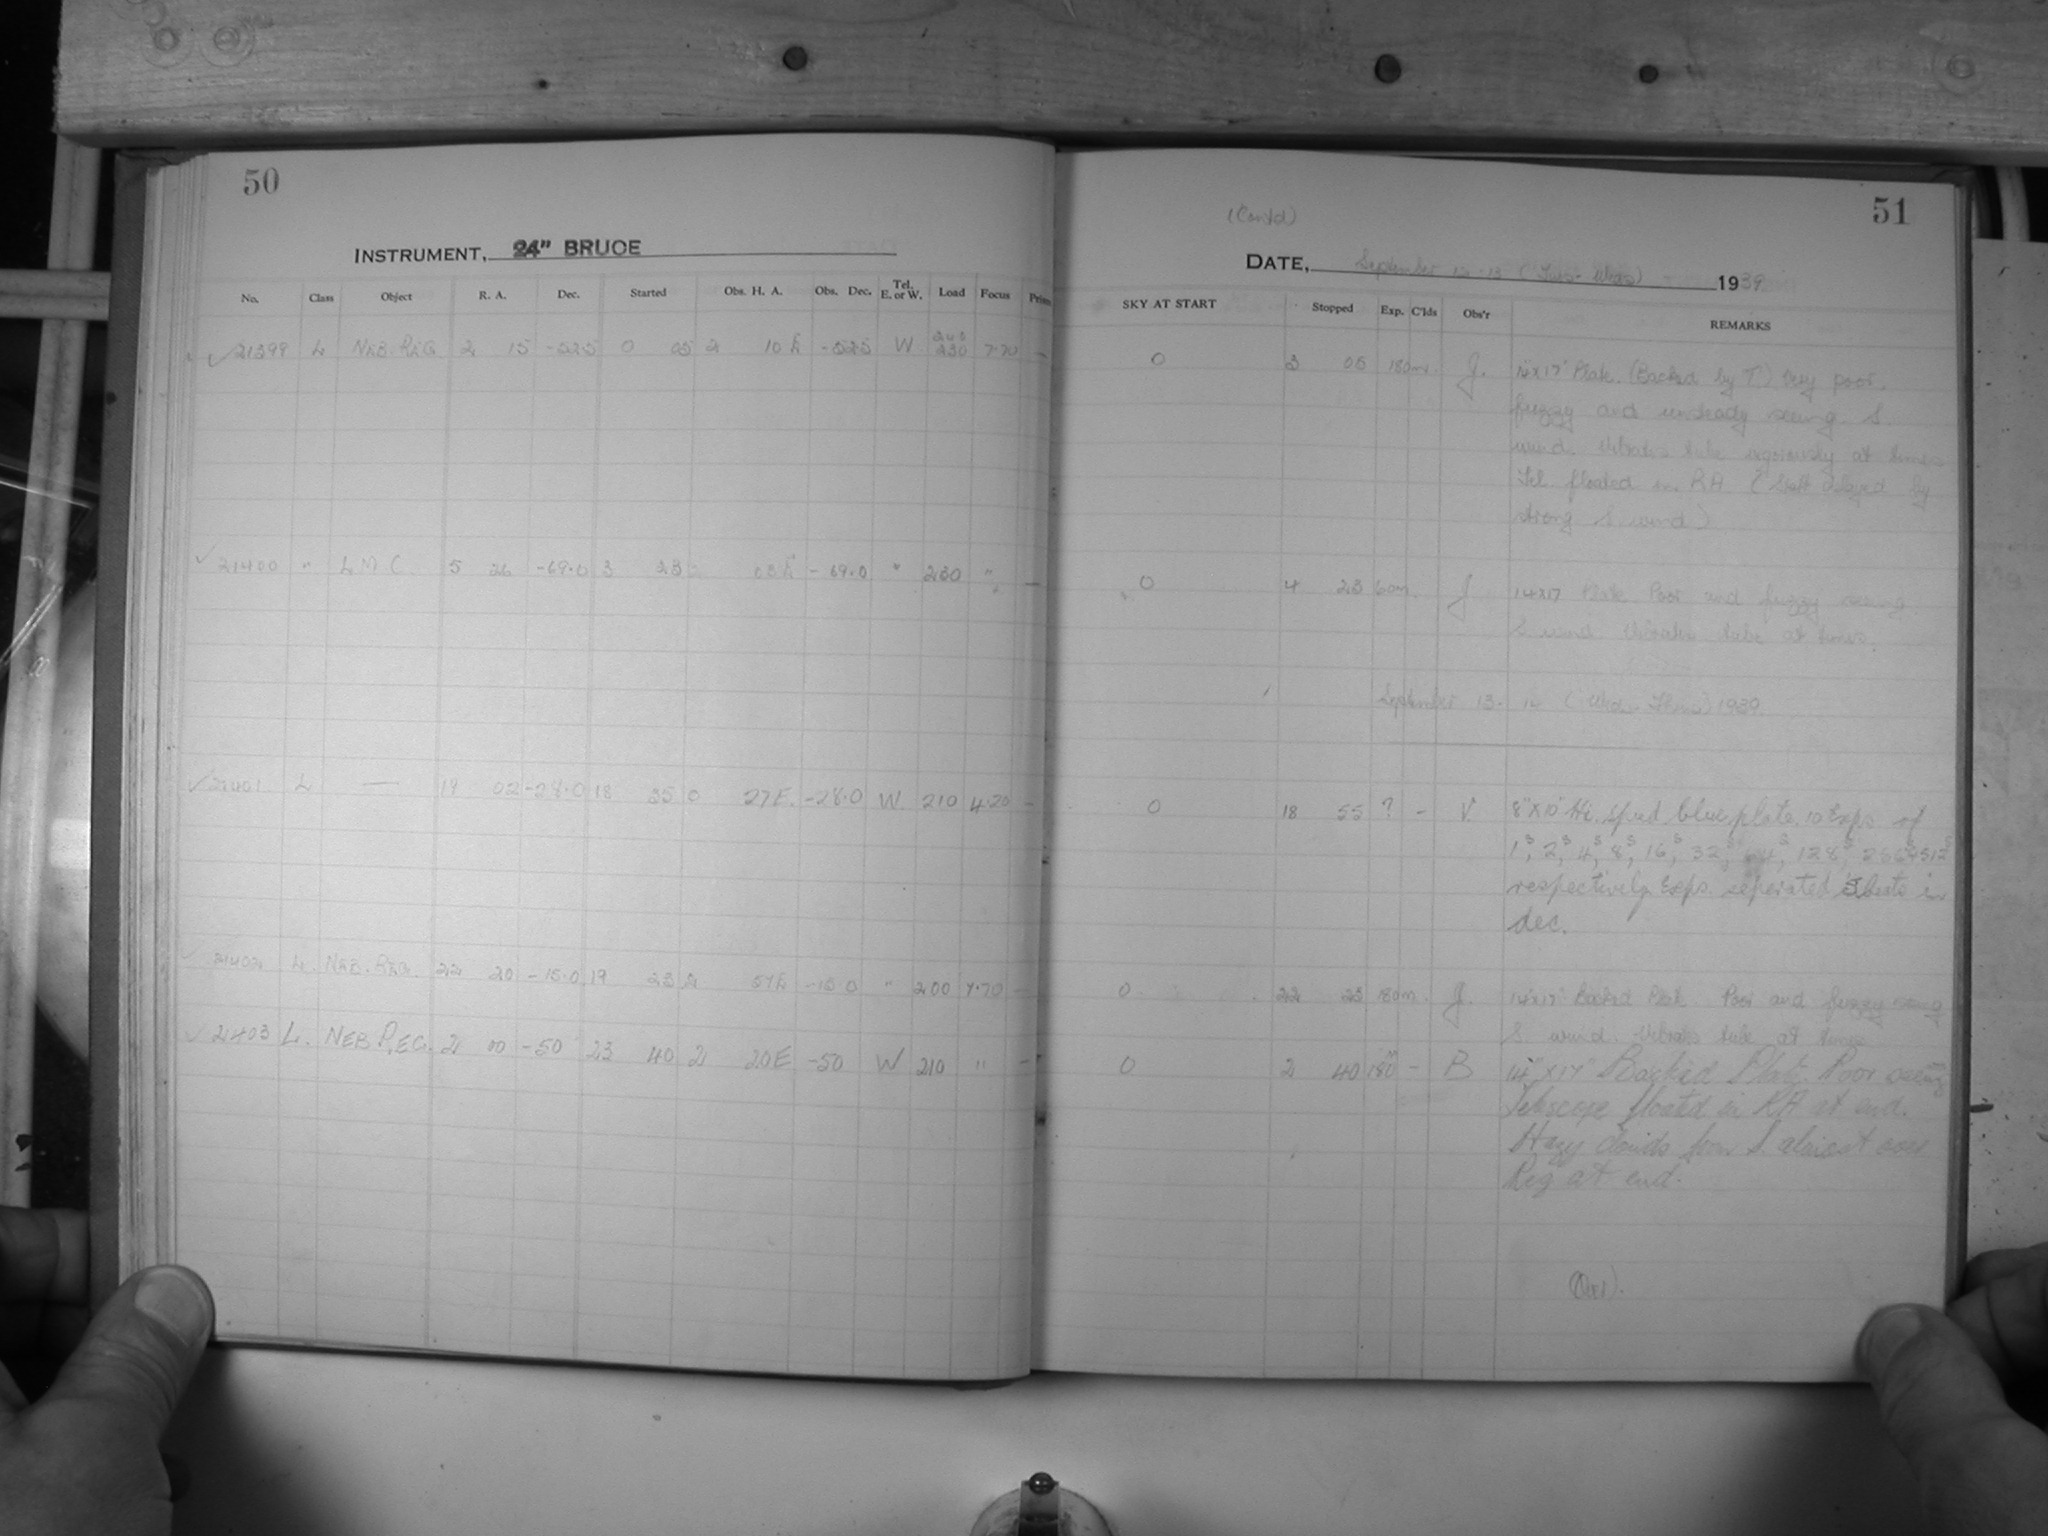 50
INSTRUMENT, 24" BRUCE
No. Class Object R. A. Dec. Started Obs. H. A. Obs. Dec. Tel. E. or W. Load Focus Prism
21399 L NEB. REG. 2 15 -52.5 0 05 2 10 E -52.5 W 230 7.70 —
21400 " L M C. 5 26 -69.0 3 23 2 03 E -69.0 " 230 " —
21401 L — 19 02 -28.0 18 35 0 27 E. -28.0 W 210 4.20 -
21402 L. NEB. REG. 22 20 -15.0 19 23 2 57 E -15.0 " 200 7.70 -
21403 L. NEB REG. 21 00 -50 23 40 2 20 E -50 W 210 " -
51
(Contd)
DATE, September 12-13 (Tues-Weds) 1939
SKY AT START Stopped Exp. C'lds Obs'r REMARKS
0 3 05 180m. J. 14x17" Plate. (Backed by T) Very poor,
fuzzy and unsteady seeing S.
wind. Vibrates tube vigorously at times
Tel. floated in RA (Start delayed by
strong S wind)
0 4 23 60m. J 14x17 Plate Poor and fuzzy seeing.
S. wind. Vibrates tube at times.
September 13-14 (Wed-Thurs) 1939
0 18 55 ? - V. 8"x10" Hi. speed blue plate. 10 Exps of
1s, 2s, 4s, 8s, 16s, 32s, 64s, 128s, 256s, 512s
respectively. Exps. seperated in
dec.
0 22 23 180m. J. 14x17" Backed Plate. Poor and fuzzy seeing
S. wind. Vibrates tube at times
0 2 40 180m - B 14"x17" Backed Plate. Poor seeing
Telescope floated in RA at end.
Hazy clouds from S. almost over
Reg at end.
(Over).